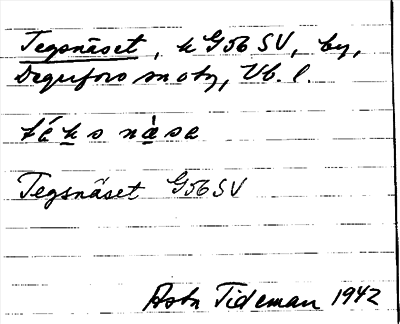 Tegsnäset, k G56 SV, by,
Degerfors sn o tg, Vb. l.
té k s nä̀sa
Tegsnäset G56 SV
Astr Tideman 1942